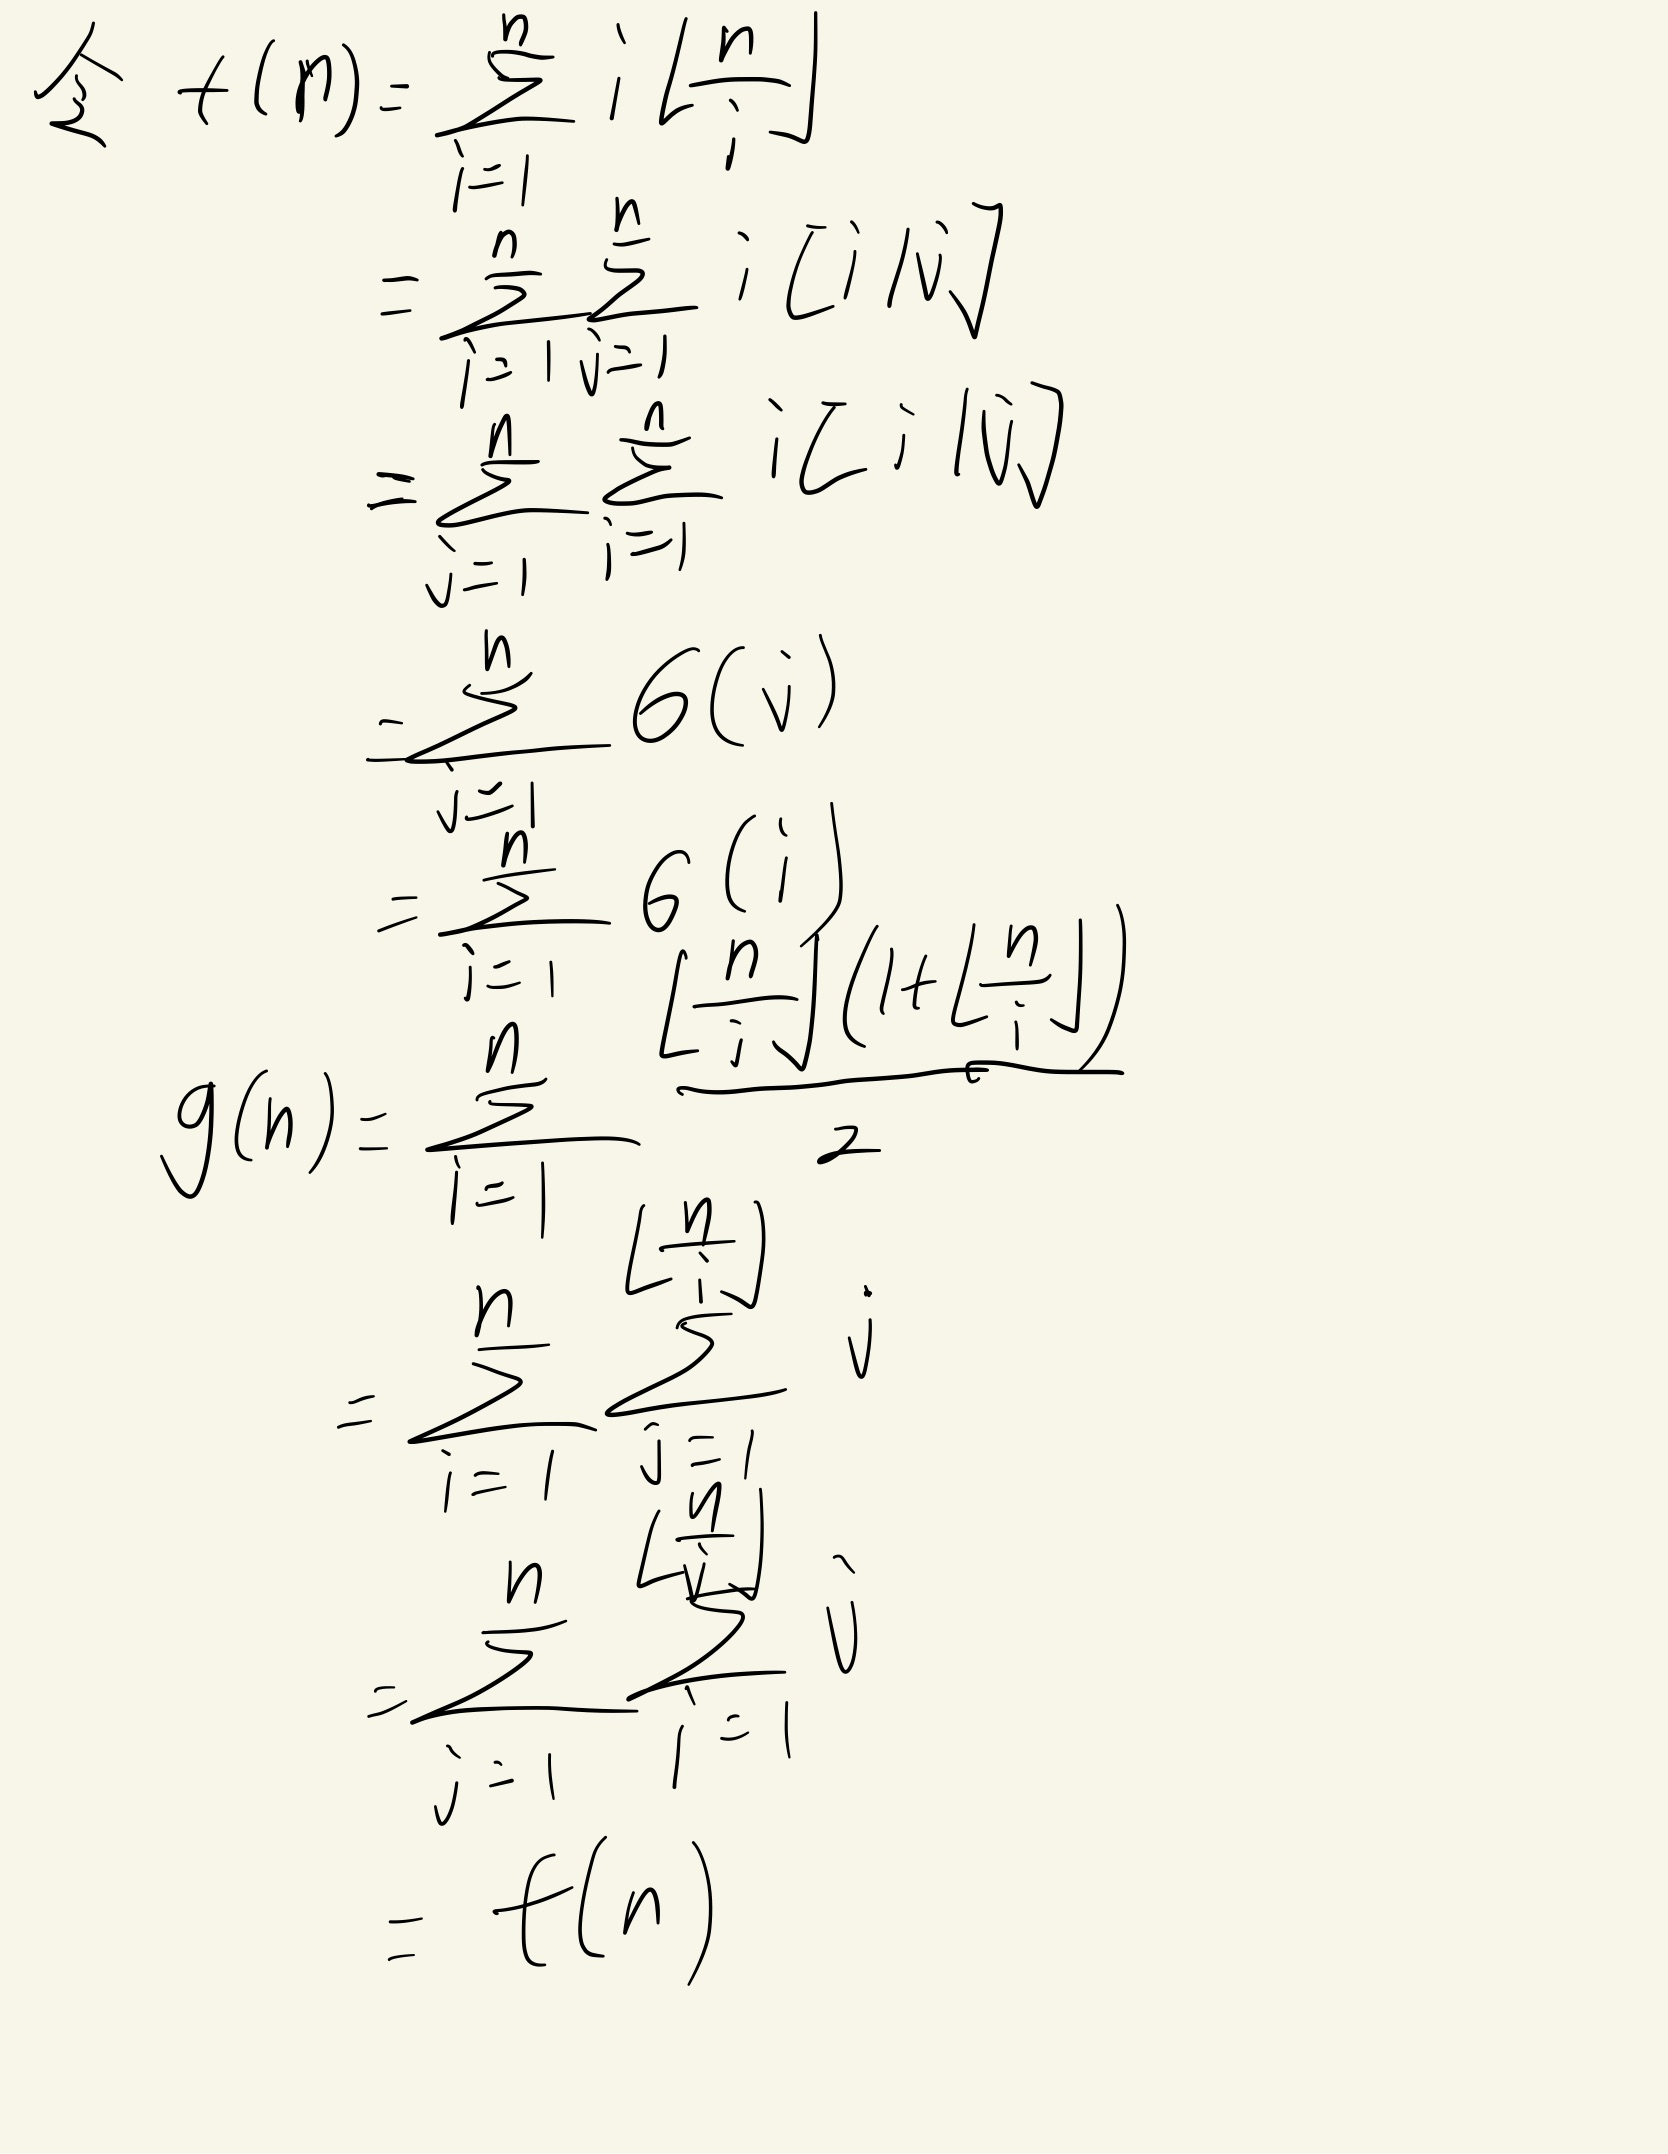 令 f(n) = \sum_{i=1}^{n} i \lfloor \frac{n}{i} \rfloor
= \sum_{i=1}^{n} \sum_{j=1}^{n} i [i | j]
= \sum_{j=1}^{n} \sum_{i=1}^{n} i [i | j]
= \sum_{j=1}^{n} 6(j)
= \sum_{i=1}^{n} 6(i)
g(n) = \sum_{i=1}^{n} \frac{\lfloor \frac{n}{i} \rfloor (1 + \lfloor \frac{n}{i} \rfloor)}{2}
= \sum_{i=1}^{n} \sum_{j=1}^{\lfloor \frac{n}{i} \rfloor} j
= \sum_{j=1}^{n} \sum_{i=1}^{\lfloor \frac{n}{j} \rfloor} j
= f(n)